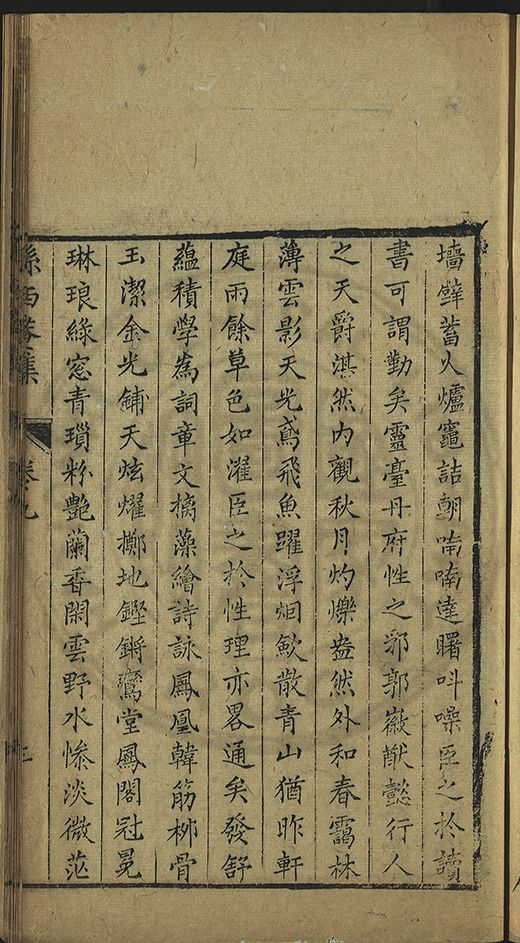 墻壁蓄火爐竈詰朝喃喃達曙呌噪臣之於讀
書可謂勤矣靈臺丹府性之郛郭徽猷懿行人
之天爵湛然内觀秋月灼爍盎然外和春靄林
薄雲影天光鳶飛魚躍浮烟歛散青山猶昨軒
庭雨餘草色如濯臣之於性理亦畧通矣發舒
蘊積學為詞章文摛藻繪詩詠鳳凰韓筋栁骨
玉潔金光鋪天炫燿擲地鏗鏘鸞堂鳳閣冠冕
琳琅緑窓青瑣粉艶蘭香閑雲野水惨淡微茫
集 卷九